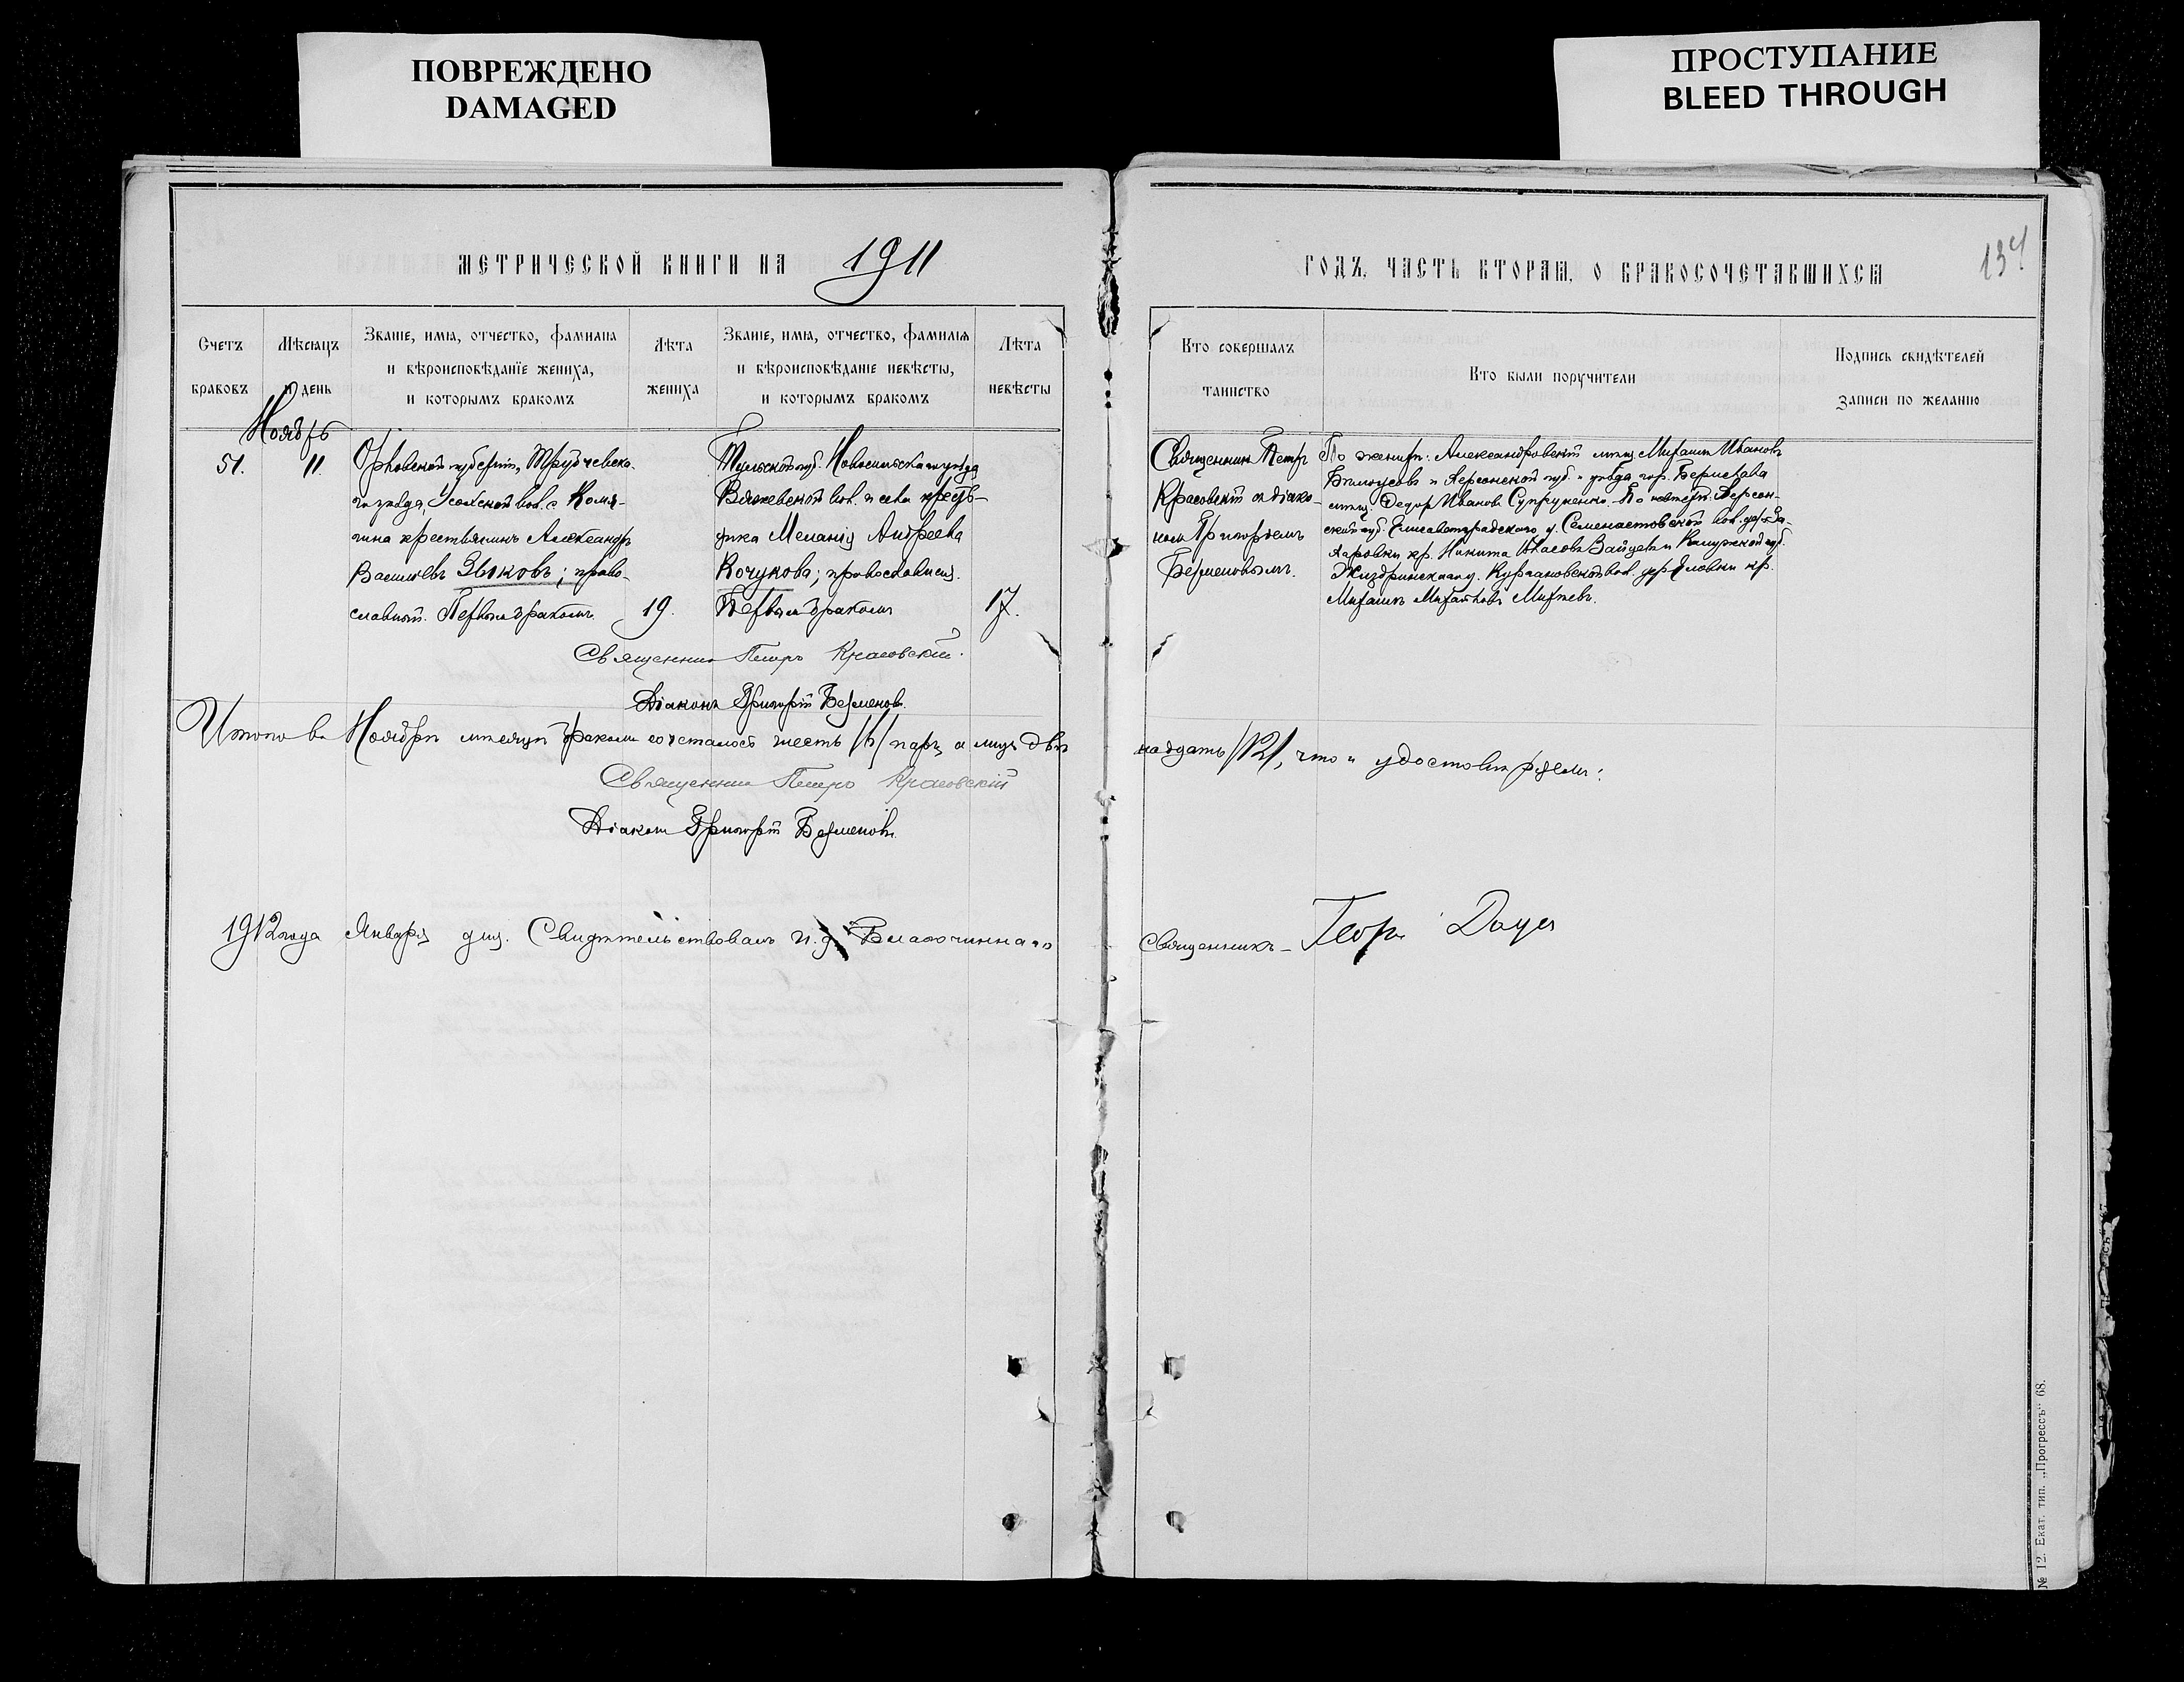 ПОВРЕЖДЕНО
DAMAGED
ПРОСТУПАНИЕ
BLEED THROUGH
МЕТРИЧЕСКОЙ КНИГИ НА 1911
ГОДЪ, ЧАСТЬ ВТОРАЯ, О БРАКОСОЧЕТАВШИХСЯ
134
Счетъ
браковъ
Мѣсяцъ
и день
Званіе, имя, отчество, фамилія
и вѣроисповѣданіе жениха,
и которымъ бракомъ
Лѣта
жениха
Званіе, имя, отчество, фамилія
и вѣроисповѣданіе невѣсты,
и которымъ бракомъ
Лѣта
невѣсты
Кто совершалъ
таинство
Кто были поручители
Подпись свидѣтелей
записи по желанію
Ноябрь
51.
11.
Орловской губерніи, Трубчевска-
го уѣзда, Усохской вол. с.
крестьянинъ Александръ
Васильевъ Зыковъ; право-
славный. Первымъ бракомъ.
19.
Тульской губ. Новосильскаго уѣзда
вол. и села кресть-
янка Меланія Андреева
Кочукова; православная.
Первымъ бракомъ
17.
Священникъ Петръ
Красовскій съ діако-
номъ Григоріемъ
Безменовымъ.
По женихѣ: Александровскій мѣщ. Михаилъ Ивановъ
Бѣлоусовъ и Херсонской губ. и уѣзда, гор. Берислава
мѣщ. Ѳедоръ Ивановъ Супруненко. По невѣстѣ: Херсон-
ской губ. Елисаветградскаго у. вол. дер. За-
харовки кр. Никита Власовъ Зайцевъ и Калужской губ.
Жиздринскаго у. вол. дер. кр.
Михаилъ Михайловъ
Священникъ Петръ Красовскій.
Діаконъ Григорій Безменовъ.
Итого въ Ноябрѣ мѣсяцѣ бракомъ сочеталось шесть /6/ паръ, а лицъ двѣ-
надцать /12/, что и удостовѣряемъ:
Священникъ Петръ Красовскій
Діаконъ Григорій Безменовъ.
1912 года Января дня. Свидѣтельствовалъ и. д. Благочиннаго
священникъ – Георг
№ 12. Екат. тип. „Прогрессъ“ 68.